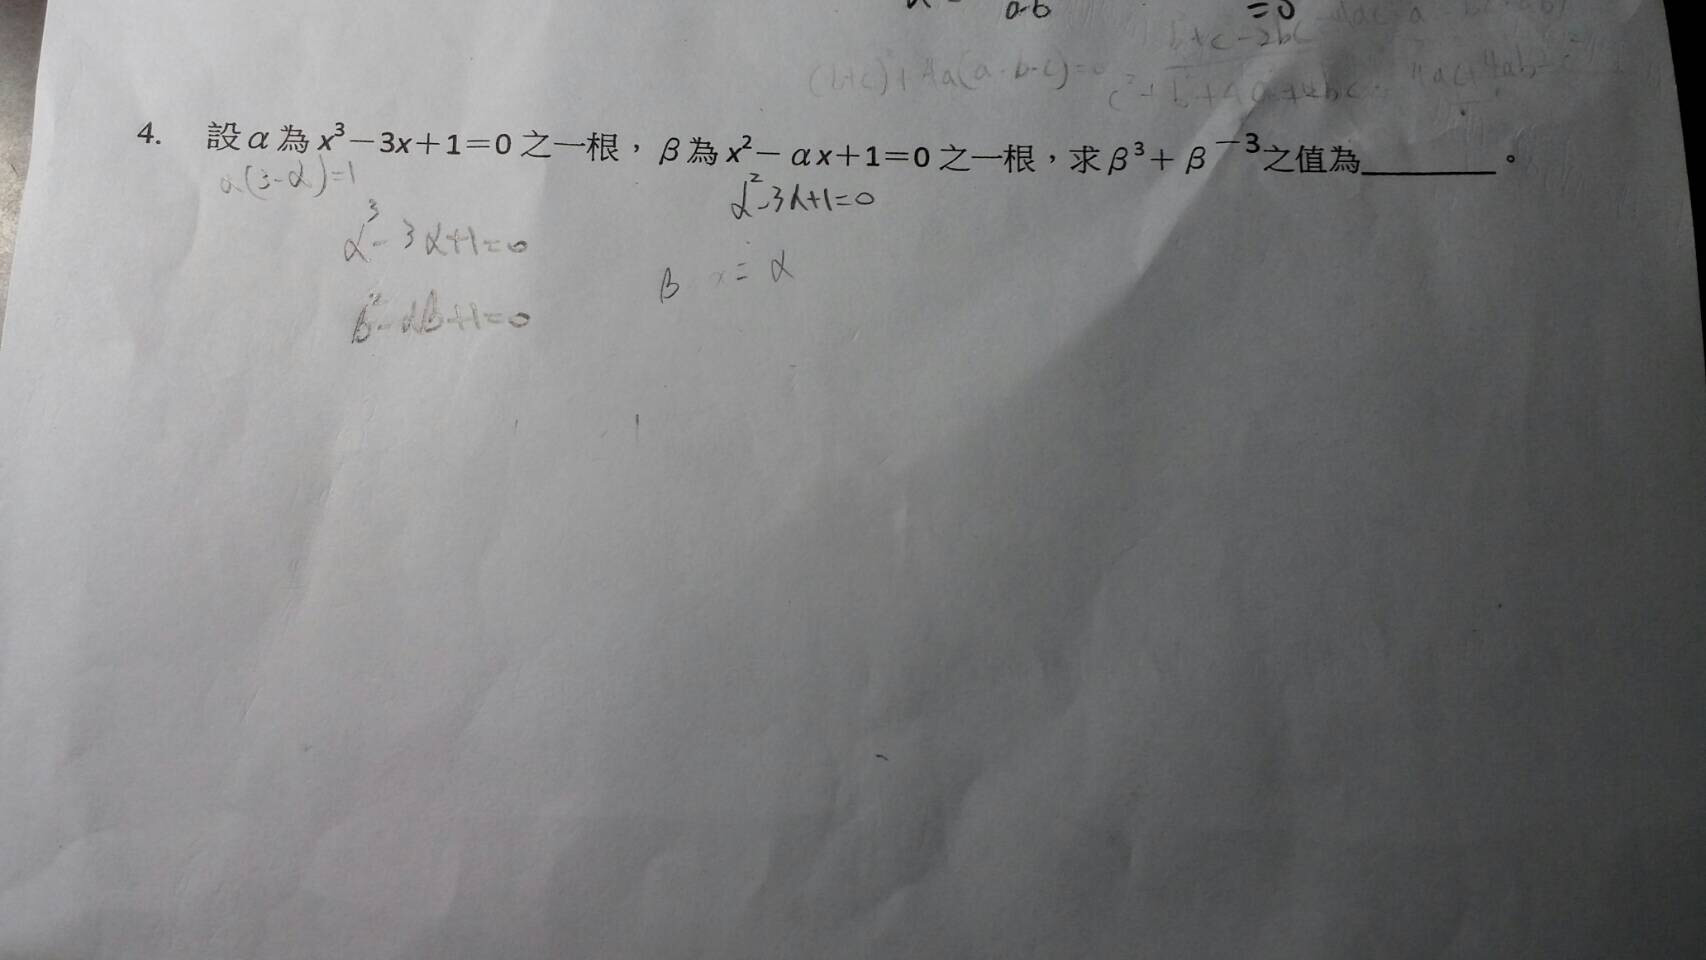 a-b
=0
b+c-2bc
(b+c)²+4a(a-b-c)=0
4. 設α為x³－3x＋1＝0之一根，β為x²－αx＋1＝0之一根，求β³＋β⁻³之值為________。
α(3-α)=1
α²-3α+1=0
α³-3α+1=0
β = α
β²-αβ+1=0